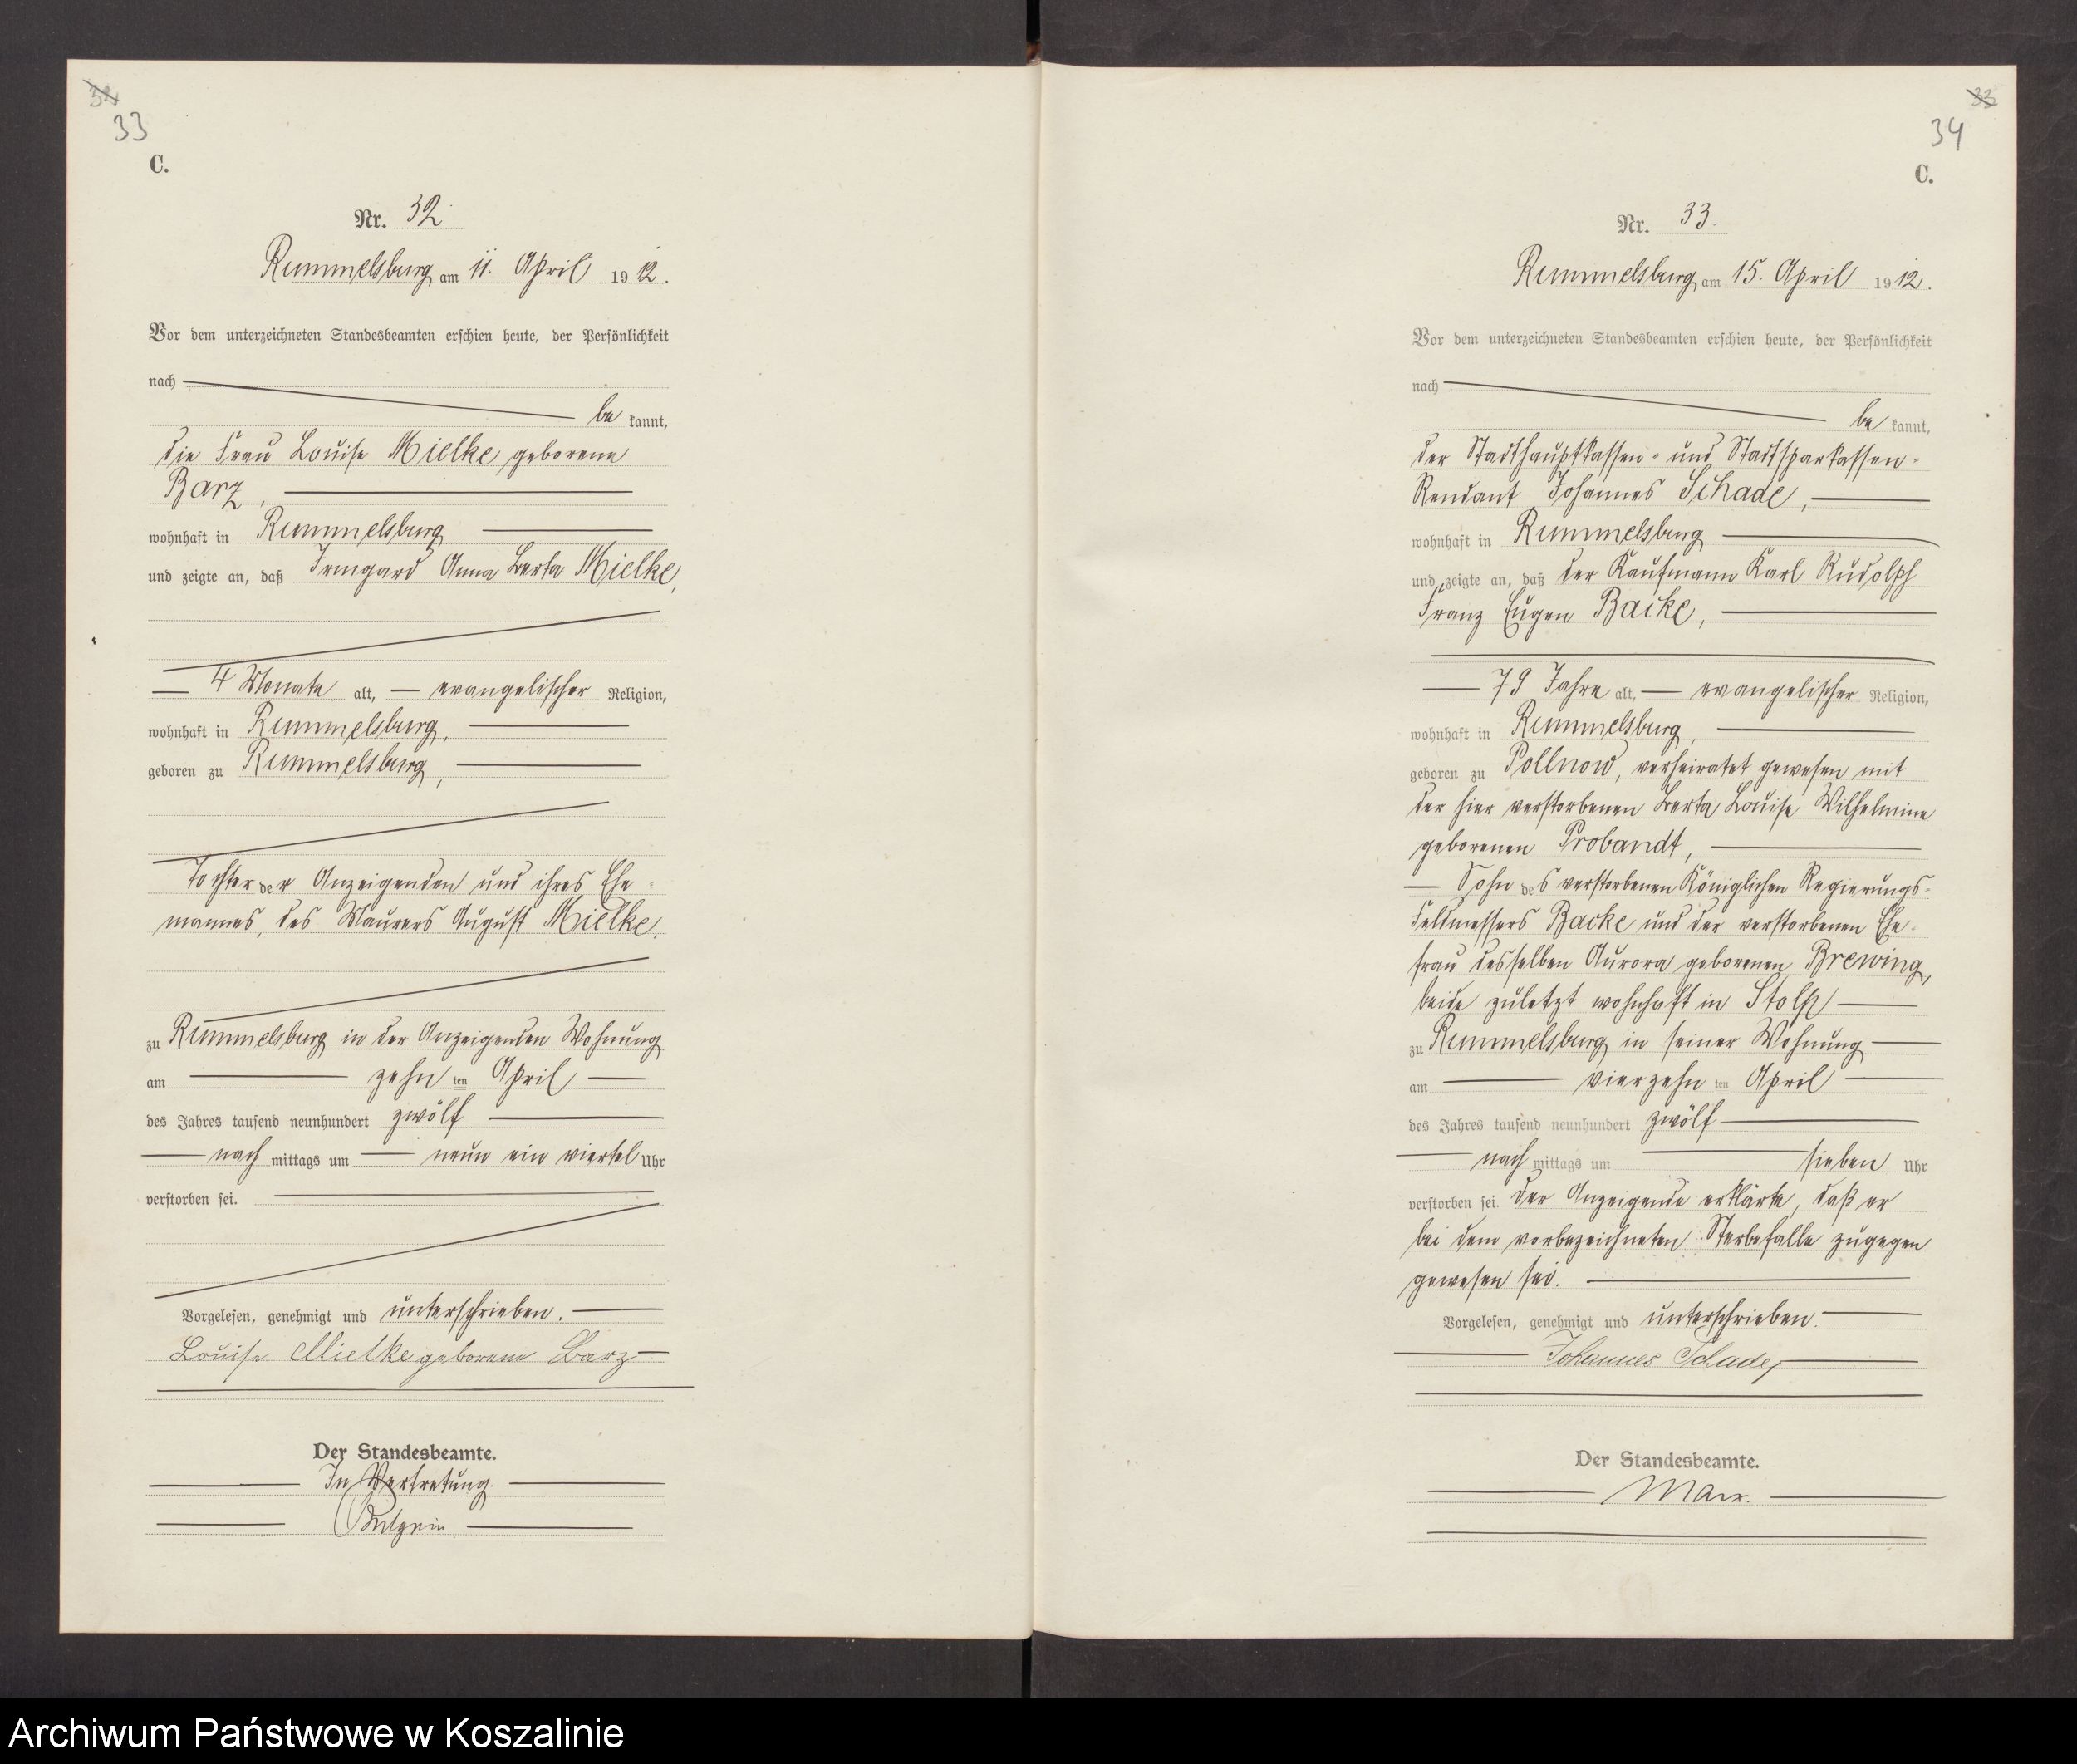 32
33
C.
Nr. 32
Rummelsburg am 11. April 1912.
Vor dem unterzeichneten Standesbeamten erschien heute, der Persönlichkeit
nach
be kannt,
die Frau Louise Mielke geborene
Barz,
wohnhaft in Rummelsburg
und zeigte an, daß Irmgard Anna Berta Mielke,
4 Monate alt, evangelischer Religion,
wohnhaft in Rummelsburg,
geboren zu Rummelsburg,
Tochter der Anzeigenden und ihres Ehe-
mannes, des Maurers August Mielke,
zu Rummelsburg in der Anzeigenden Wohnung
am zehn ten April
des Jahres tausend neunhundert zwölf
nach mittags um neun ein viertel Uhr
verstorben sei.
Vorgelesen, genehmigt und unterschrieben.
Louise Mielke geborene Barz
Der Standesbeamte.
In Vertretung.
33
34
C.
Nr. 33.
Rummelsburg am 15. April 1912.
Vor dem unterzeichneten Standesbeamten erschien heute, der Persönlichkeit
nach
be kannt,
der Stadthauptkassen- und Stadtsparkassen-
Rendant Johannes Schade,
wohnhaft in Rummelsburg
und zeigte an, daß der Kaufmann Karl Rudolph
Franz Eugen Backe,
79 Jahre alt, evangelischer Religion,
wohnhaft in Rummelsburg,
geboren zu Pollnow, verheiratet gewesen mit
der hier verstorbenen Berta Louise Wilhelmine
geborenen Probandt,
Sohn des verstorbenen Königlichen Regierungs-
Feldmessers Backe und der verstorbenen Ehe-
frau desselben Aurora geborenen Brewing,
beide zuletzt wohnhaft in Stolp
zu Rummelsburg in seiner Wohnung
am vierzehn ten April
des Jahres tausend neunhundert zwölf
nach mittags um sieben Uhr
verstorben sei. Der Anzeigende erklärte, daß er
bei dem vorbezeichneten Sterbefalle zugegen
gewesen sei.
Vorgelesen, genehmigt und unterschrieben.
Johannes Schade
Der Standesbeamte.
Archiwum Państwowe w Koszalinie